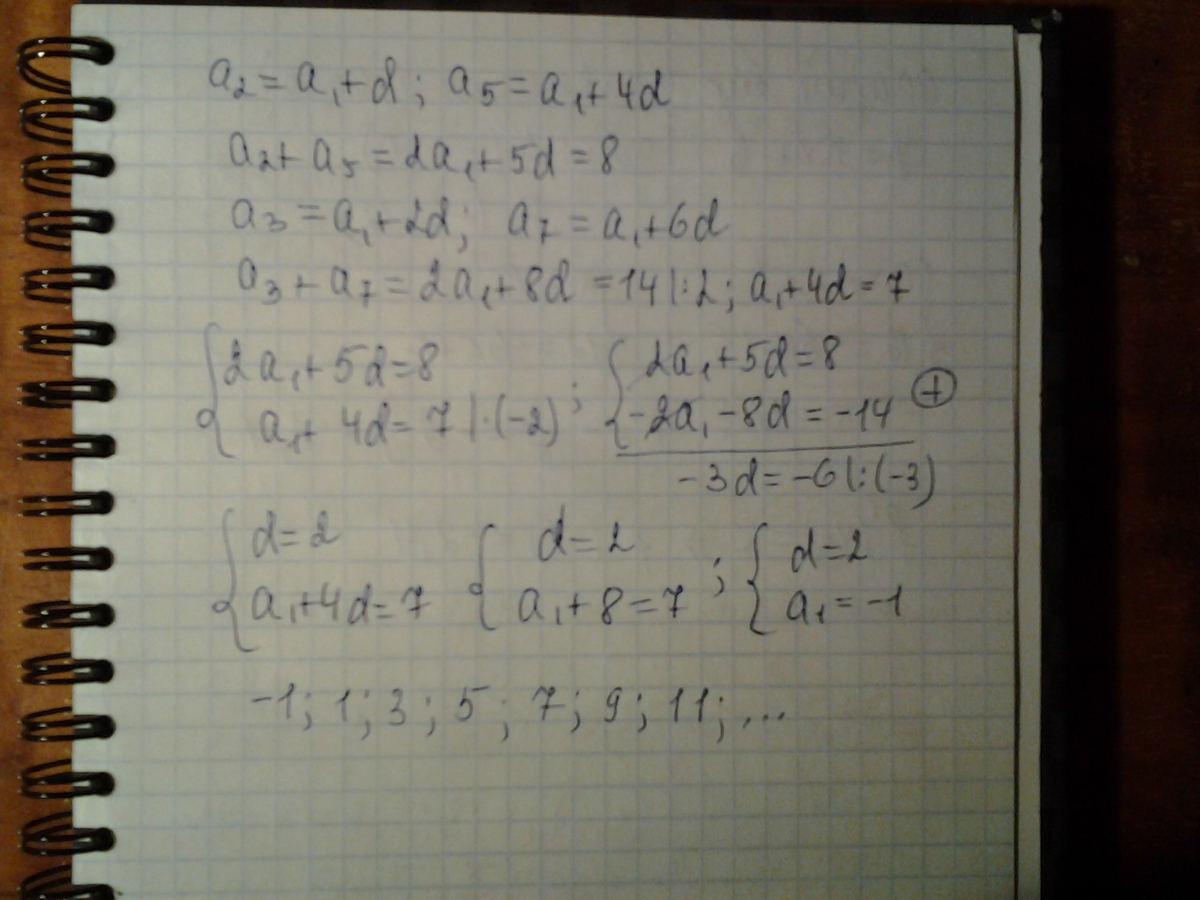 a₂ = a₁ + d ; a₅ = a₁ + 4d
a₂ + a₅ = 2a₁ + 5d = 8
a₃ = a₁ + 2d ; a₇ = a₁ + 6d
a₃ + a₇ = 2a₁ + 8d = 14 |:2 ; a₁ + 4d = 7
{ 2a₁ + 5d = 8 ; { 2a₁ + 5d = 8
a₁ + 4d = 7 |·(-2) -2a₁ - 8d = -14 ⊕
-3d = -6 |:(-3)
{ d = 2 { d = 2 ; { d = 2
a₁ + 4d = 7 a₁ + 8 = 7 a₁ = -1
-1; 1; 3; 5; 7; 9; 11; ...